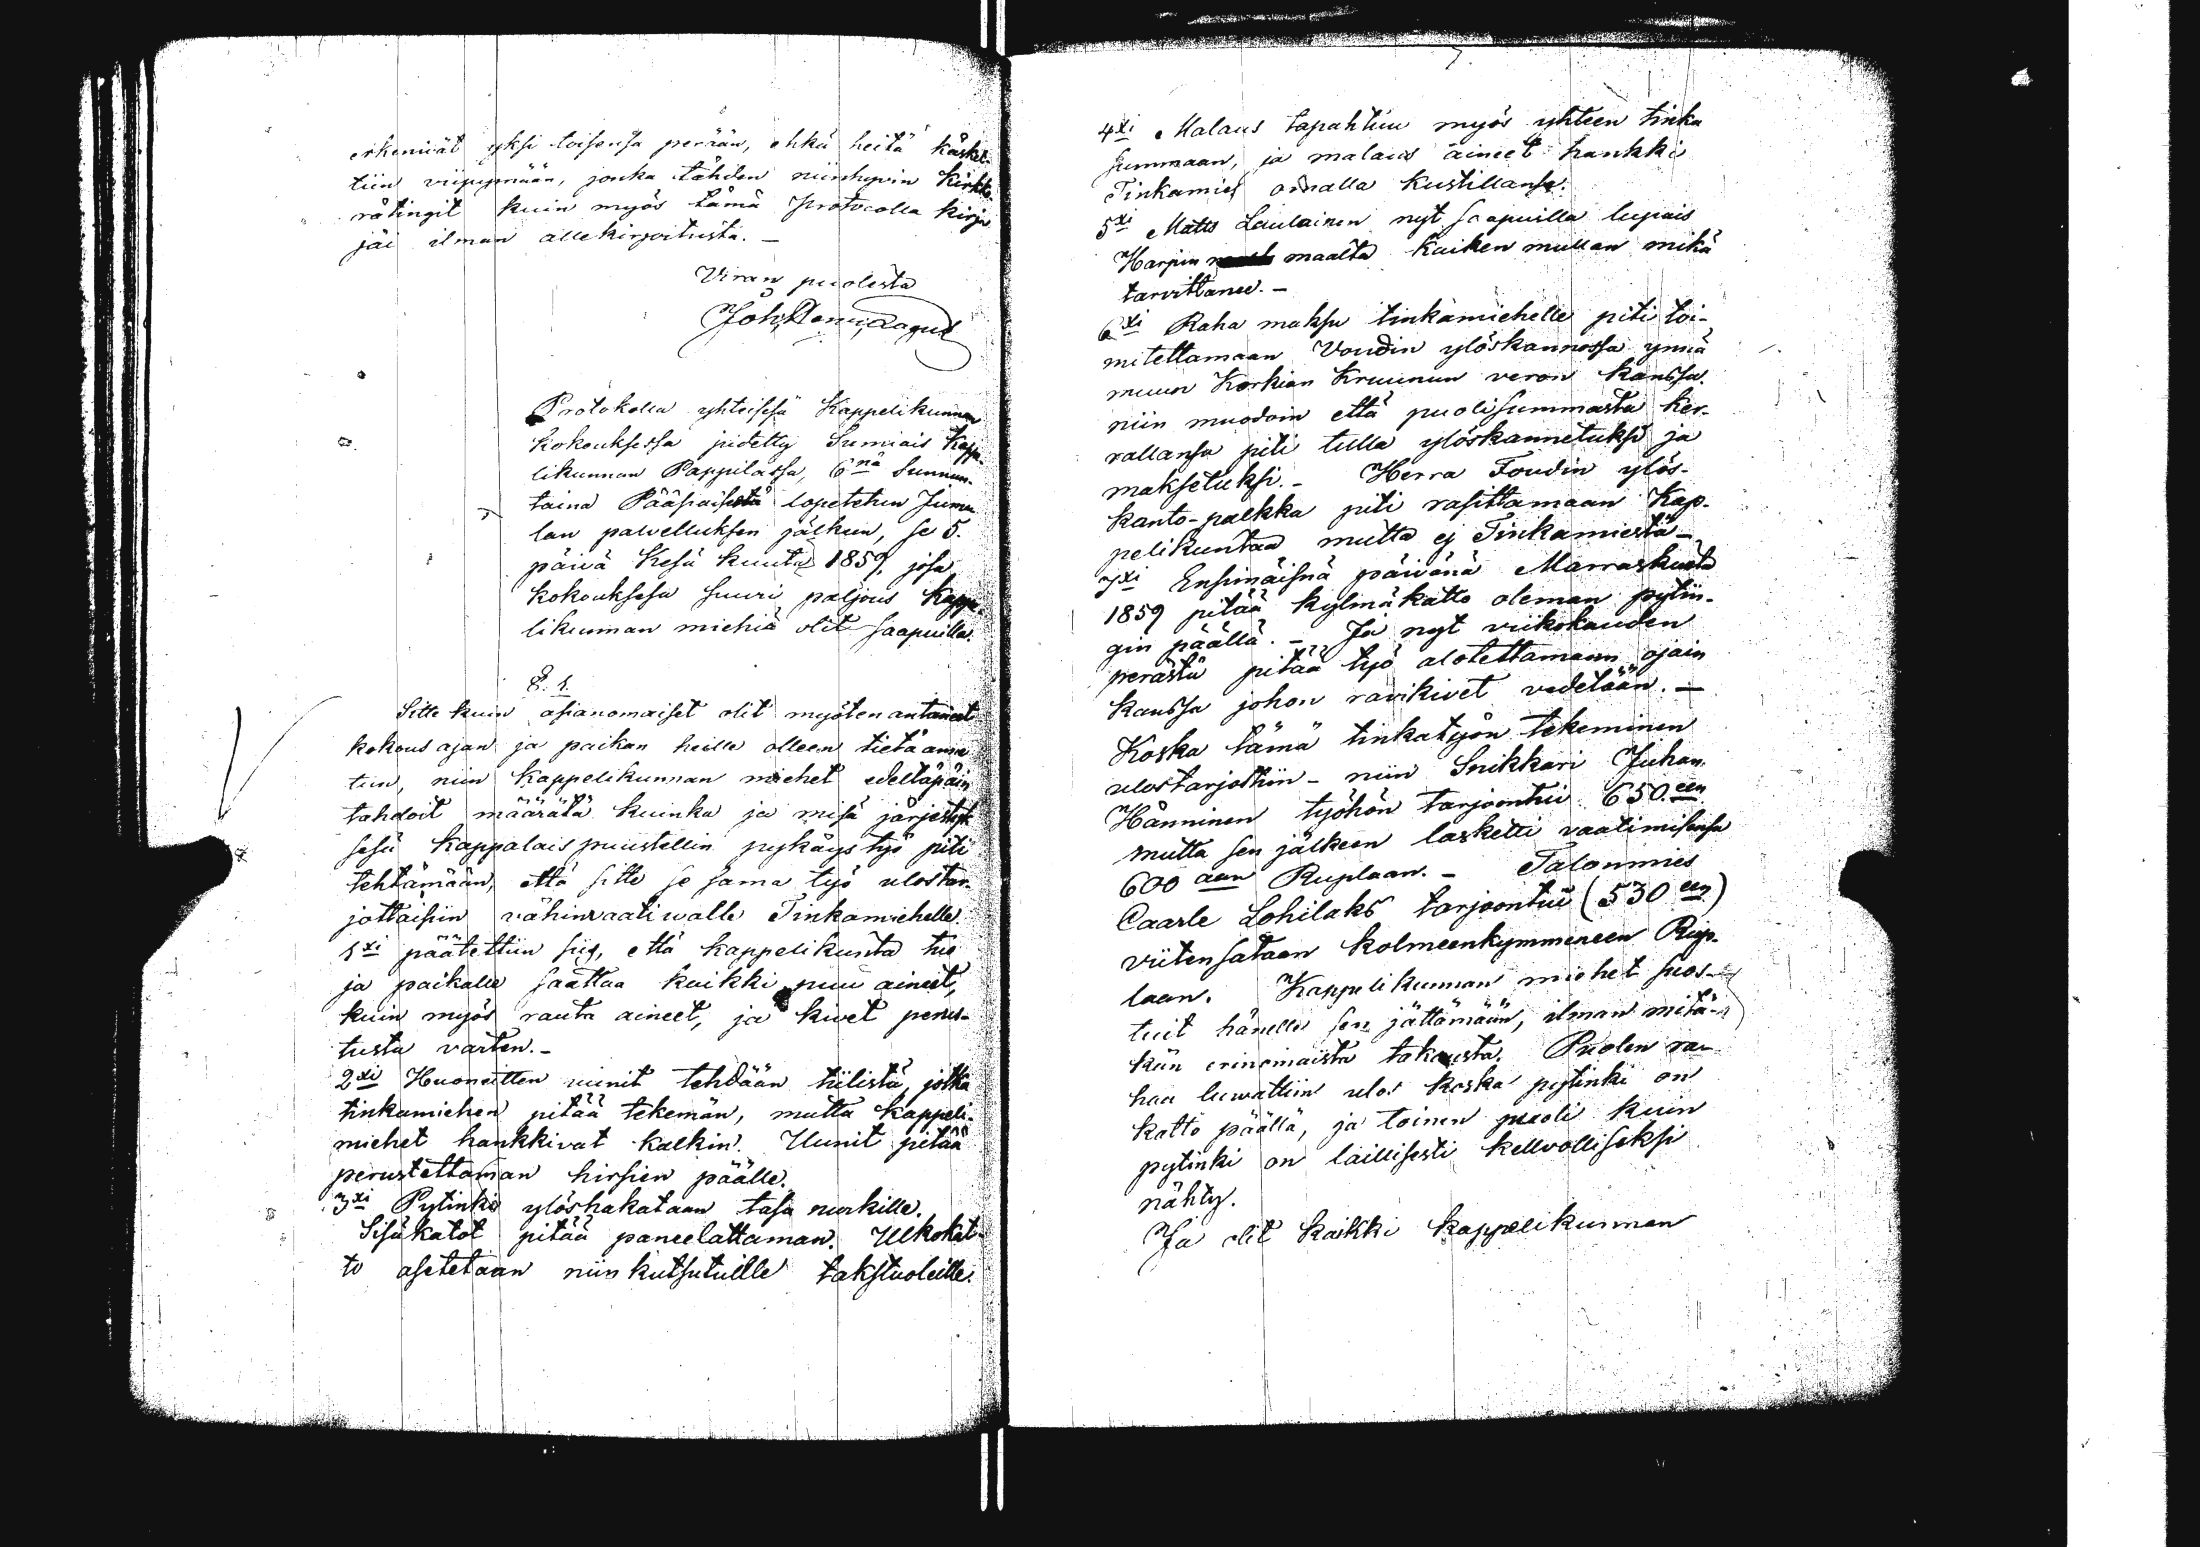 erkenivät yksi toisensa perään, ehkä heitä käsket-
tiin viipymään, jonka tähden niinhyvin Kirkko
rätingit kuin myös tämä Protocolla kirja
jäi ilman allekirjoitusta. —
Viran puolesta
Protokolla yhteisesä Kappelikunnan
kokouksessa pidetty Sumiais Kappe-
likunnan Pappilassa, 6nä Sunnun-
taina Pääsiäisestä lopetetun Juma-
lan palvelluksen jälkeen, se 5.
päivä Kesä kuuta 1859, josa
kokouksesa suuri paljous Kappe-
likunnan miehiä olit saapuilla.
§. 1.
Sitte kuin asianomaiset olit myöten antaneet
kokous ajan ja paikan heille olleen tietä anne-
tun, niin Kappelikunnan miehet edeltäpäin
tahdoit määrätä kuinka ja misä järjestyk-
sesä Kappalais puustellin pykäys työ piti
tehtämään, että sitte se sama työ ulostar-
jottaisiin vähinvaativalle Tinkamiehelle.
1xi päätettiin siis, että kappelikunta tue
ja paikalle saattaa kaikki puu aineet,
kuin myös rauta aineet, ja kivet perus-
tusta varten. -
2xi Huoneitten uunit tehdään tiilistä, jotka
tinkamiehen pitää tekemän, mutta kappeli-
miehet hankkivat kalkin. Uunit pitää
perustettaman hirsien päälle.
3xi Pytinki ylöshakataan tasa nurkille.
Sisäkatot pitää paneelattaman. Ulkokat-
to asetetaan niin kutsutuille takstuoleille.
4xi Malaus tapahtuu myös yhteen tinka
summaan, ja malaus aineet hankki
Tinkamies omalla kustillansa.
5xi Matts Laulainen nyt saapuilla lupais
Harjun maalta kaiken mullan mikä
tarvittanee. -
6xi Raha maksu tinkamiehelle piti toi-
mitettamaan Voudin ylöskannossa ynnä
muun Korkian Kruunun veron kanssa.
niin muodoin että puoli summasta ker-
rallansa piti tulla ylöskannetuksi ja
maksetuksi. - Herra Foudin ylös-
kanto-palkka piti rasittamaan Kap-
pelikuntaa mutta ej Tinkamiestä -
7xi Ensimäisnä päivänä Marraskuuta
1859 pitää kylmäkatto oleman pytiin-
gin päällä. - Ja nyt viikokauden
perästä pitää työ alotettamaan ojain
kanssa johon ravikivet vedetään. —
Koska tämä tinkatyön tekeminen
ulostarjottiin - niin Snikkari Juhan
Hänninen työhön tarjoontui 650.een
mutta sen jälkeen lasketti vaatimisensa
600 aan Ruplaan. - Talonmies
Caarle Lohilaks tarjoontui (530 een)
viitensataan kolmeenkymmeneen Rup-
laan. Kappelikunnan miehet suos-
tuit hänelle sen jättämään, ilman mitä-
kän erinomaista takausta. Puolen ra-
haa luvattiin ulos koska pytinki on
katto päällä, ja toinen puoli kuin
pytinki on laillisesti kellvolliseksi
nähty.
Ja olit kaikki kappelikunnan